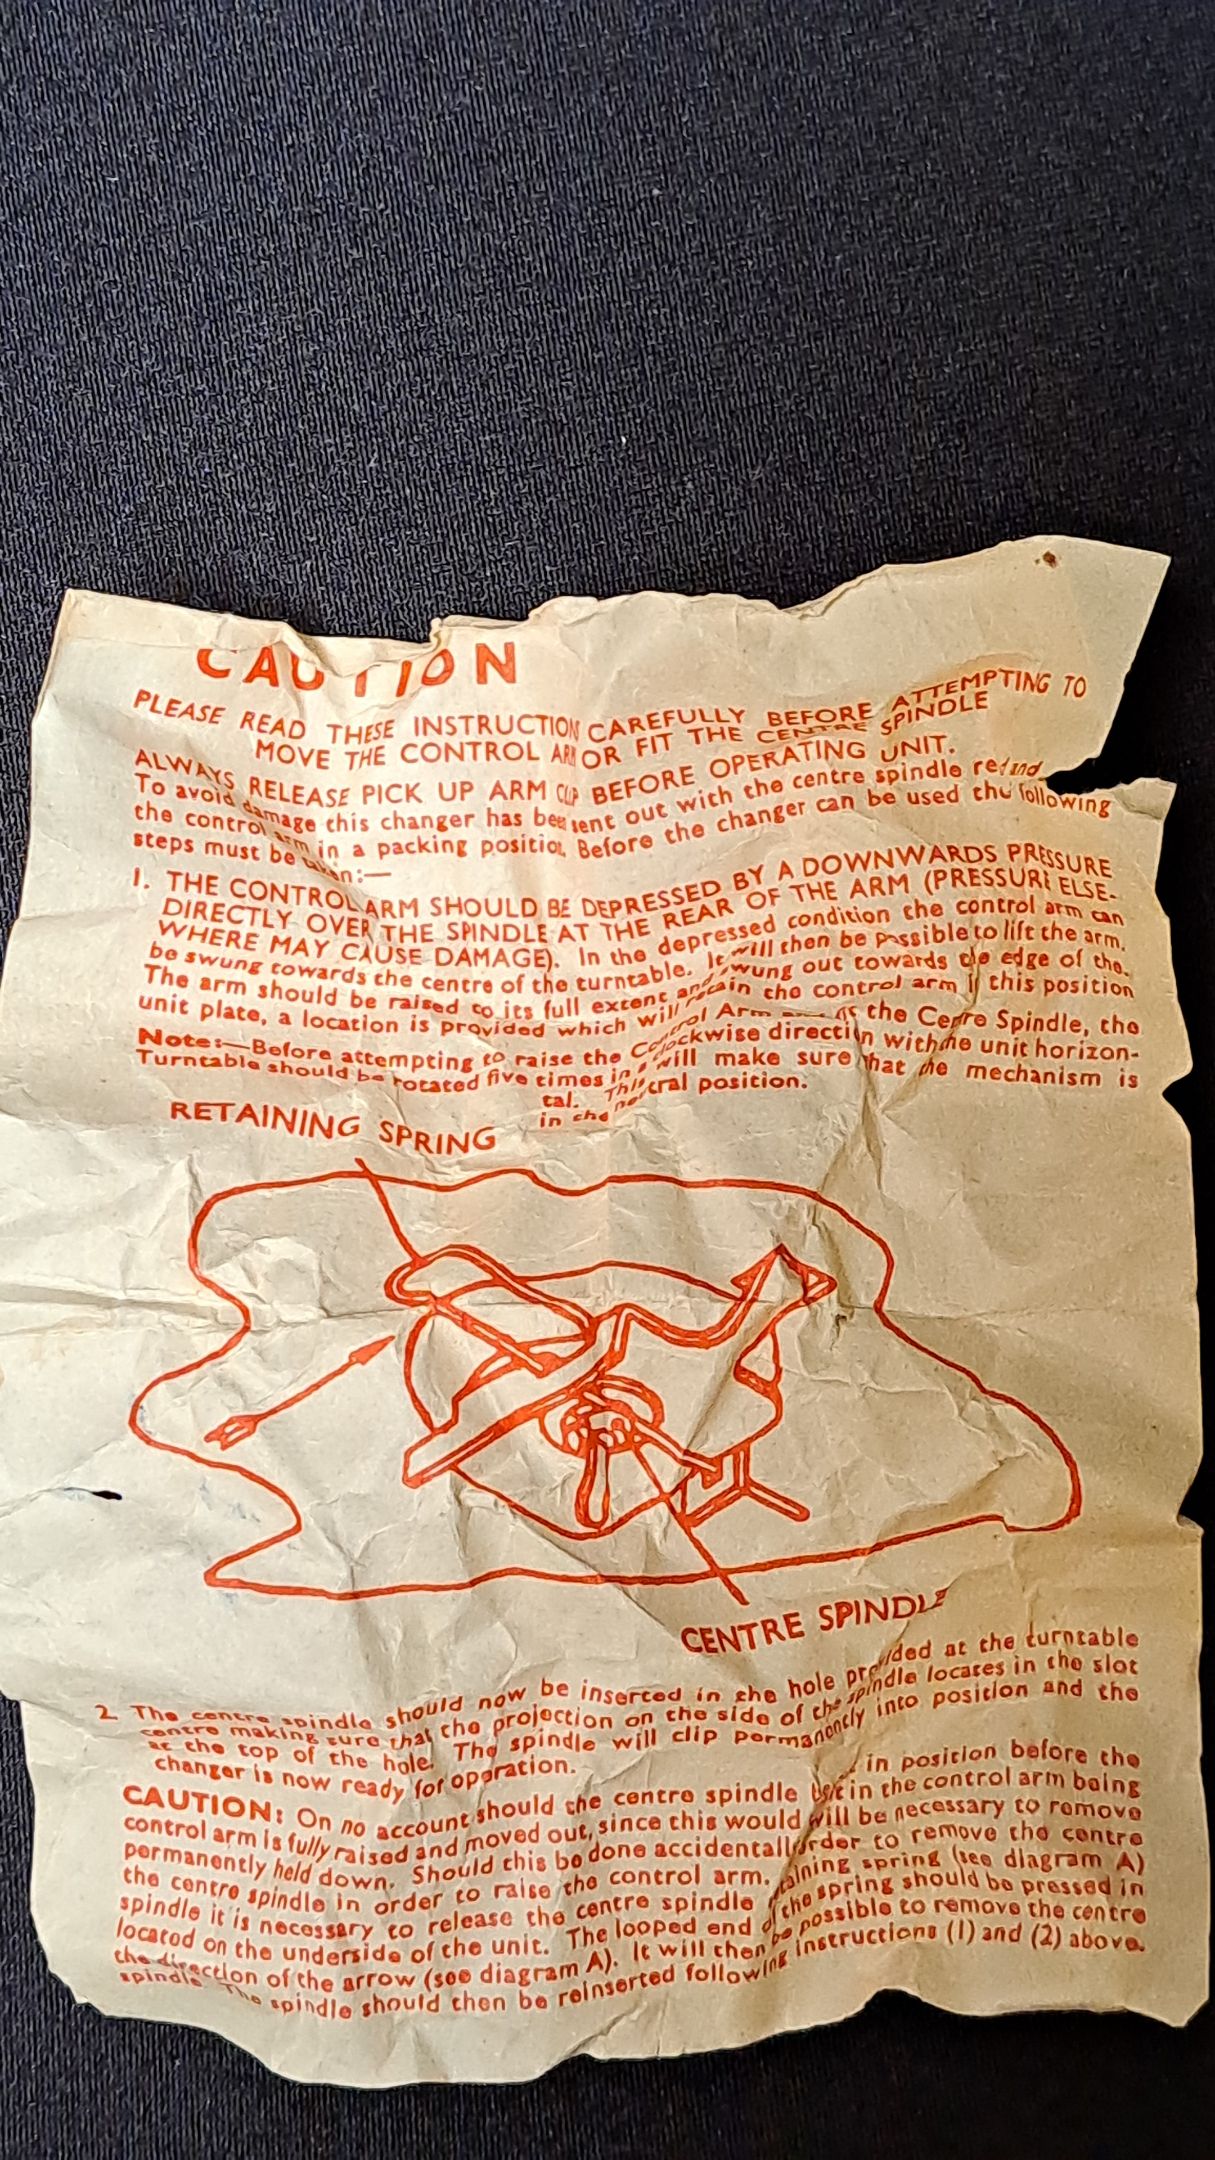 CAUTION
PLEASE READ THESE INSTRUCTIONS CAREFULLY BEFORE ATTEMPTING TO
MOVE THE CONTROL ARM OR FIT THE CENTRE SPINDLE
ALWAYS RELEASE PICK UP ARM CLIP BEFORE OPERATING UNIT.
To avoid damage this changer has been sent out with the centre spindle and
the control arm in a packing position. Before the changer can be used the following
steps must be taken:—
1. THE CONTROL ARM SHOULD BE DEPRESSED BY A DOWNWARDS PRESSURE
DIRECTLY OVER THE SPINDLE AT THE REAR OF THE ARM (PRESSURE ELSE-
WHERE MAY CAUSE DAMAGE). In the depressed condition the control arm can
be swung towards the centre of the turntable. It will then be possible to lift the arm.
The arm should be raised to its full extent and swung out towards the edge of the
unit plate, a location is provided which will retain the control arm in this position
Note:—Before attempting to raise the Control Arm the Centre Spindle, the
Turntable should be rotated five times in a clockwise direction with the unit horizon-
tal. This will make sure that the mechanism is
in the neutral position.
RETAINING SPRING
CENTRE SPINDLE
2. The centre spindle should now be inserted in the hole provided at the turntable
centre making sure that the projection on the side of the spindle locates in the slot
at the top of the hole. The spindle will clip permanently into position and the
changer is now ready for operation.
CAUTION: On no account should the centre spindle in position before the
control arm is fully raised and moved out, since this would in the control arm being
permanently held down. Should this be done accidentally will be necessary to remove
the centre spindle in order to raise the control arm. order to remove the centre
spindle it is necessary to release the centre spindle retaining spring (see diagram A)
located on the underside of the unit. The looped end of the spring should be pressed in
the direction of the arrow (see diagram A). It will then be possible to remove the centre
spindle. The spindle should then be reinserted following instructions (1) and (2) above.